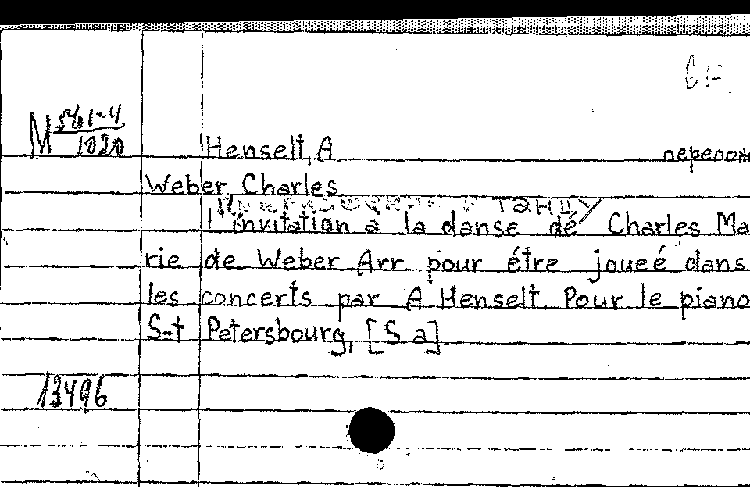 M 561-4/1020
Henselt, A перелож
Weber, Charles
танцу
l'invitation à la danse de Charles Ma
rie de Weber Arr pour étre joueé dans
les concerts par A Henselt Pour le piano
S-t Petersbourg, [S a]
13496